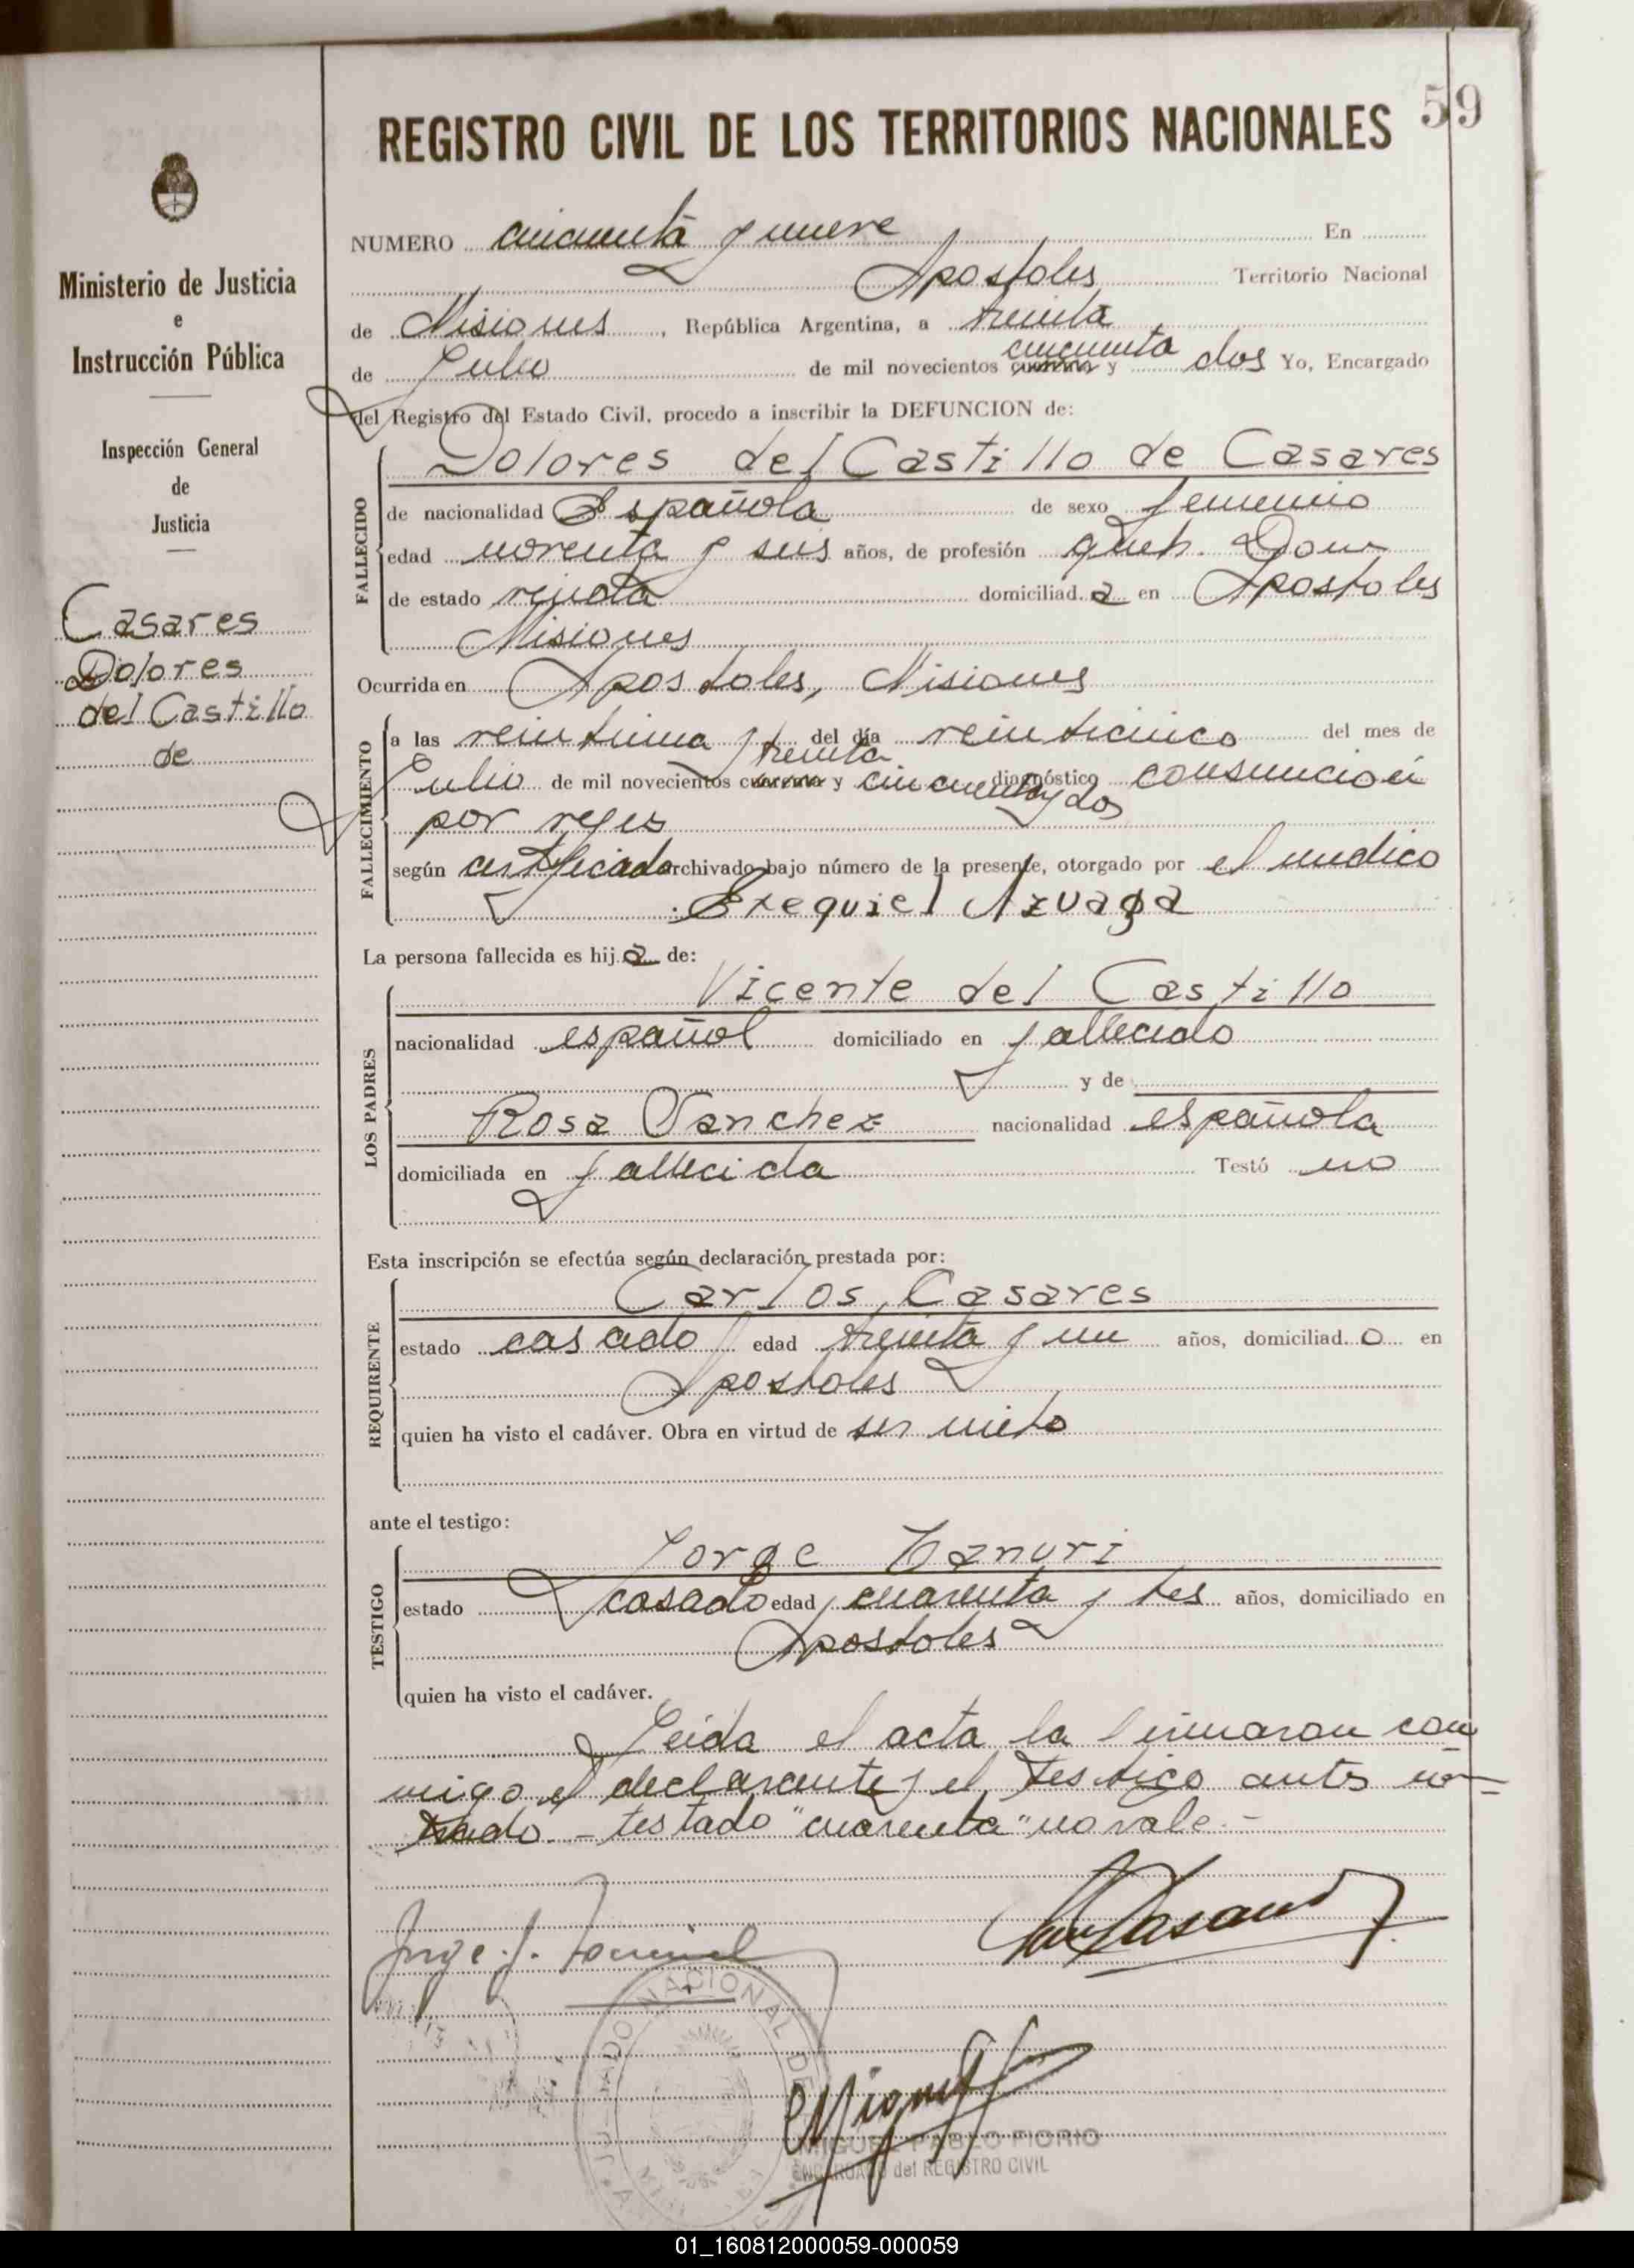 59
REGISTRO CIVIL DE LOS TERRITORIOS NACIONALES
Ministerio de Justicia
e
Instrucción Pública
Inspección General
de
Justicia
Casares
Dolores
del Castillo
de
NUMERO cincuenta y nueve En
Apostoles Territorio Nacional
de Misiones, República Argentina, a treinta
cincuenta
de Julio de mil novecientos cuarenta y dos Yo, Encargado
del Registro del Estado Civil, procedo a inscribir la DEFUNCION de:
FALLECIDO
Dolores del Castillo de Casares
de nacionalidad Española de sexo femenino
edad noventa y seis años, de profesión queh. Dom
de estado viuda domiciliad a en Apostoles
Misiones
Ocurrida en Apostoles, Misiones
FALLECIMIENTO
a las veintiuna y treinta del día veinticinco del mes de
Julio de mil novecientos cuarenta y cincuenta y dos diagnóstico consuncion
por vejes
según certificado archivado bajo número de la presente, otorgado por el medico
Exequiel Azuaga
La persona fallecida es hij a de:
LOS PADRES
Vicente del Castillo
nacionalidad español domiciliado en fallecido
y de
Rosa Sanchez nacionalidad española
domiciliada en fallecida Testó no
Esta inscripción se efectúa según declaración prestada por:
REQUIRENTE
Carlos Casares
estado casado edad treinta y un años, domiciliad o en
Apostoles
quien ha visto el cadáver. Obra en virtud de ser nieto
ante el testigo:
TESTIGO
Jorge Zanuri
estado casado edad cuarenta y tres años, domiciliado en
Apostoles
quien ha visto el cadáver.
Leida el acta la firmaron con
migo el declarante y el testigo antes no=
mdo. - testado "cuarenta" no vale.-
Jorge J.
NACIONAL DE
MIGUEL PABLO FIORIO
ENCARGADO del REGISTRO CIVIL
01_160812000059-000059